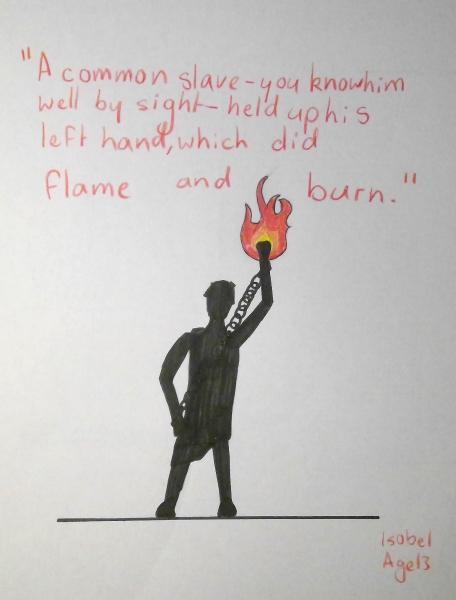 "A common slave-you know him
well by sight-held up his
left hand, which did
flame and burn."
Isobel
Age13